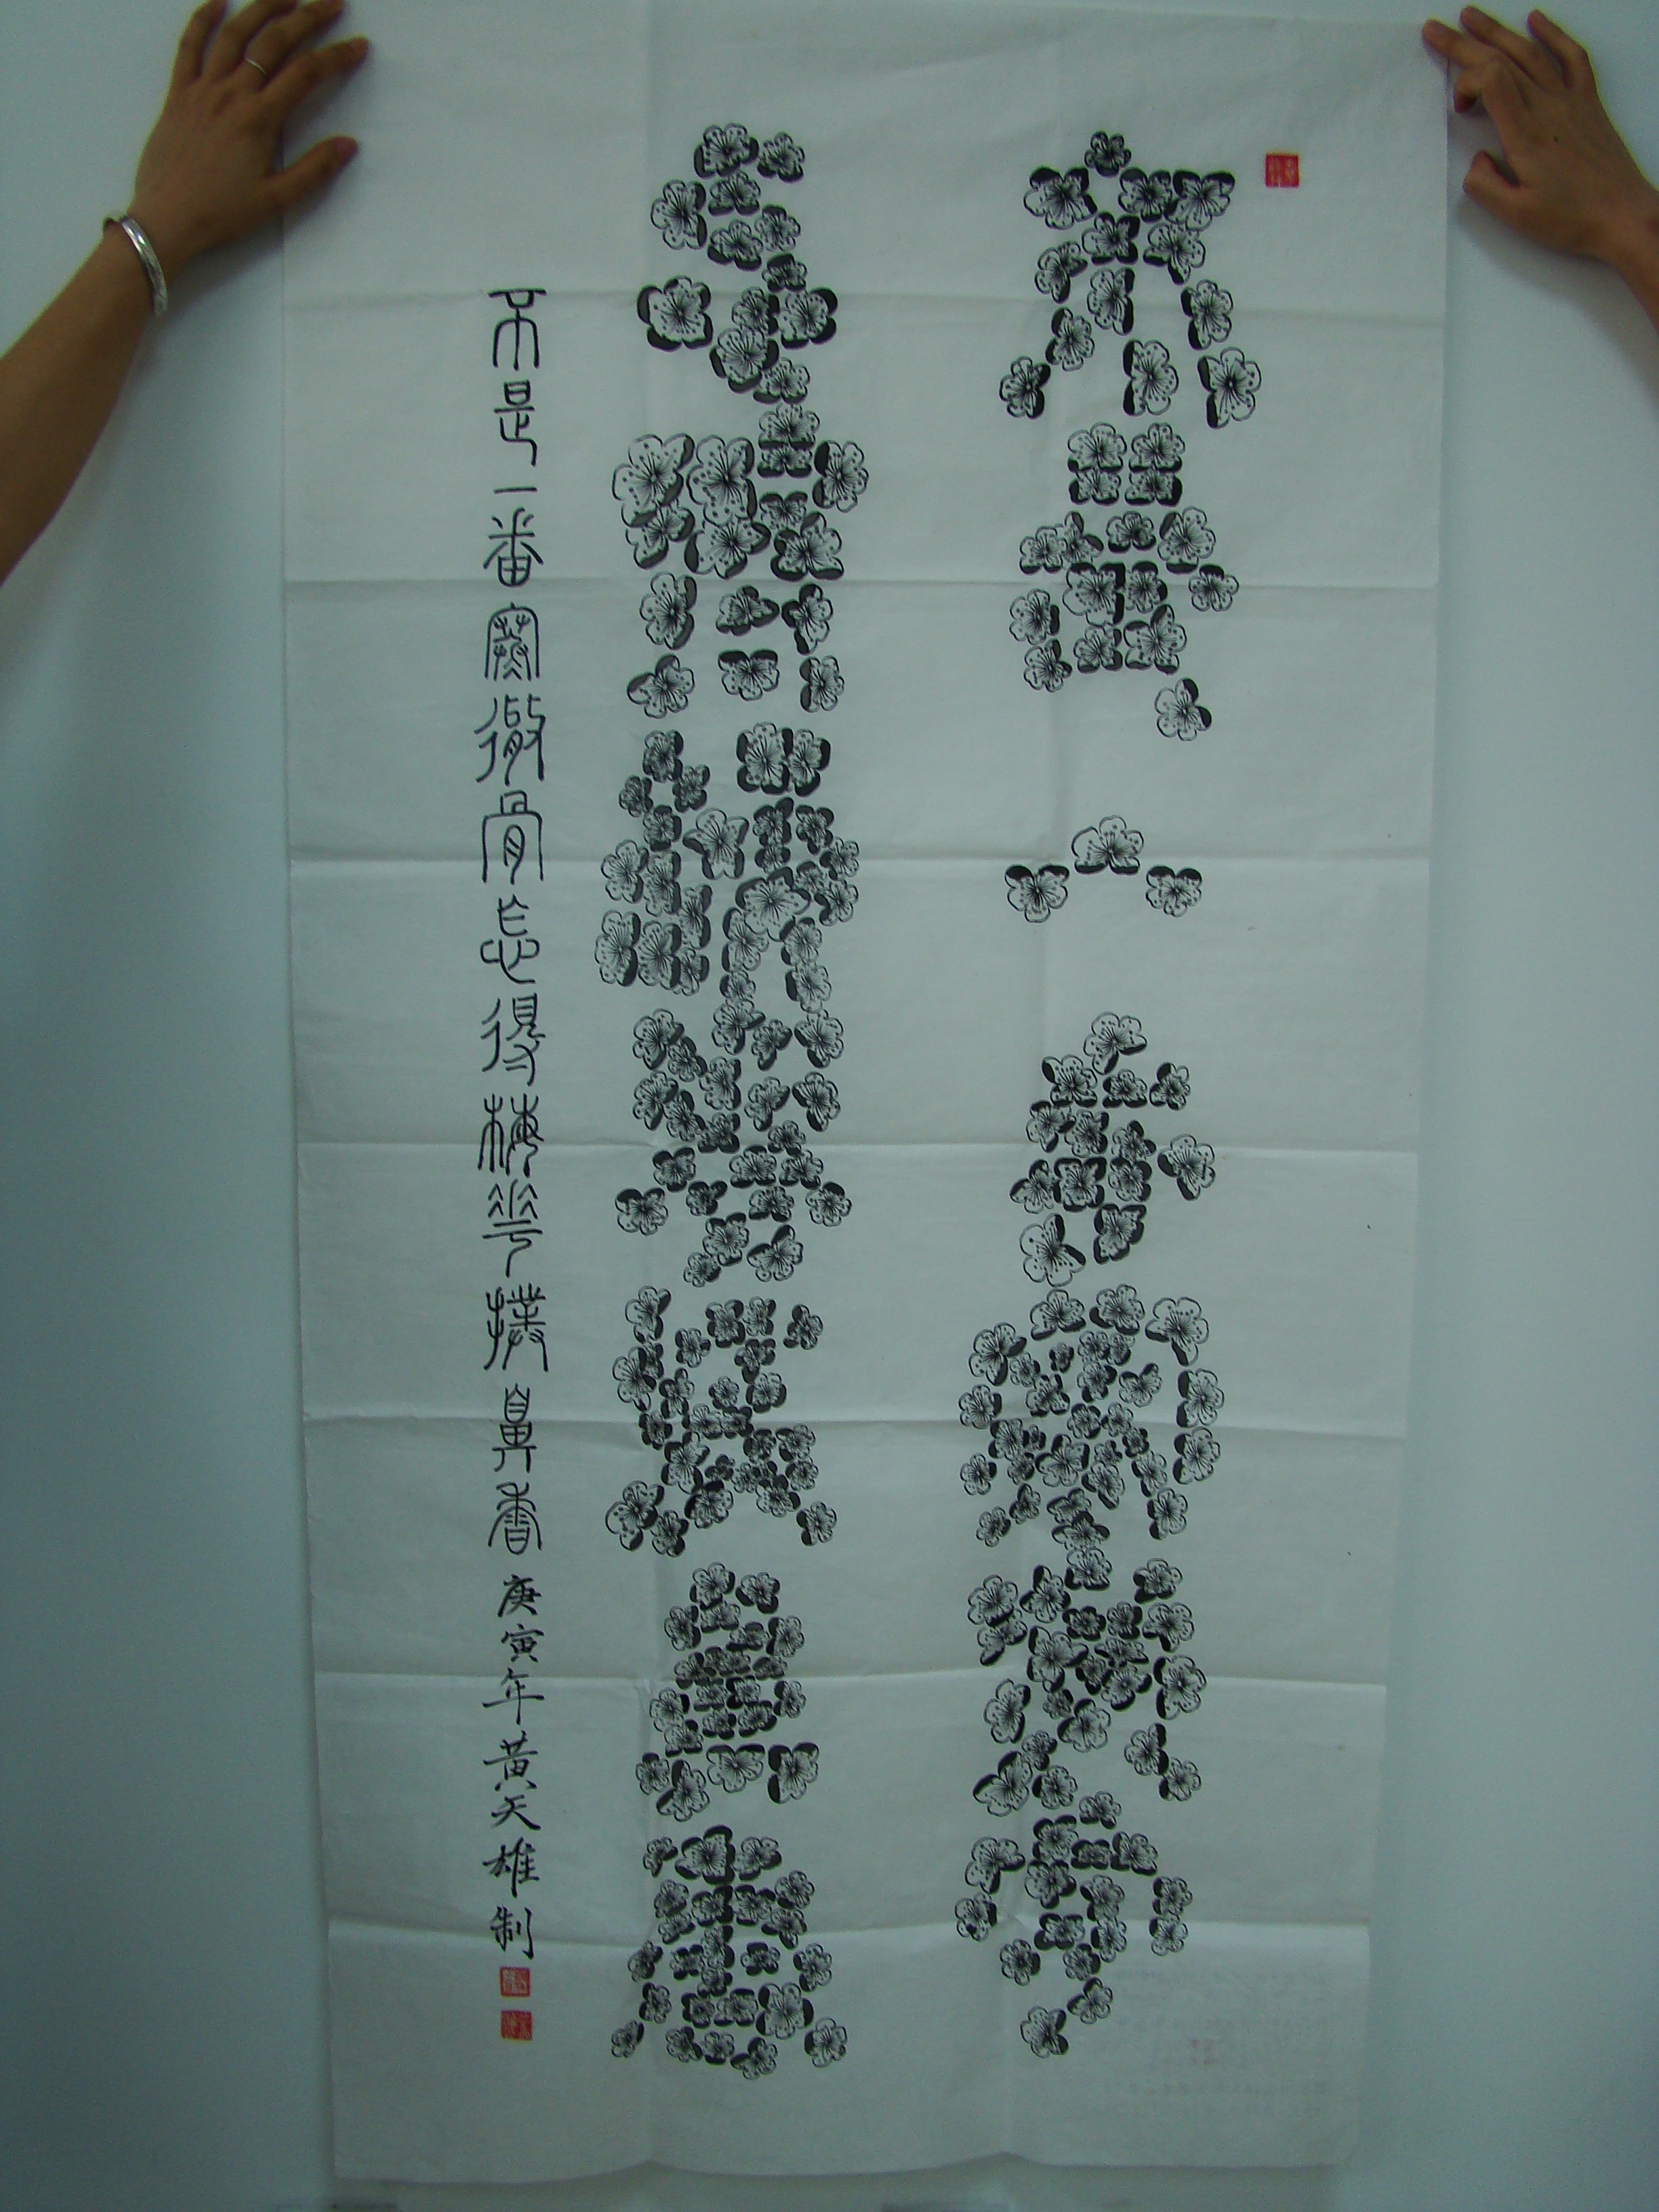 不是一番寒徹骨
怎得梅華撲鼻香
不是一番寒徹骨怎得梅華撲鼻香庚寅年黃天雄制